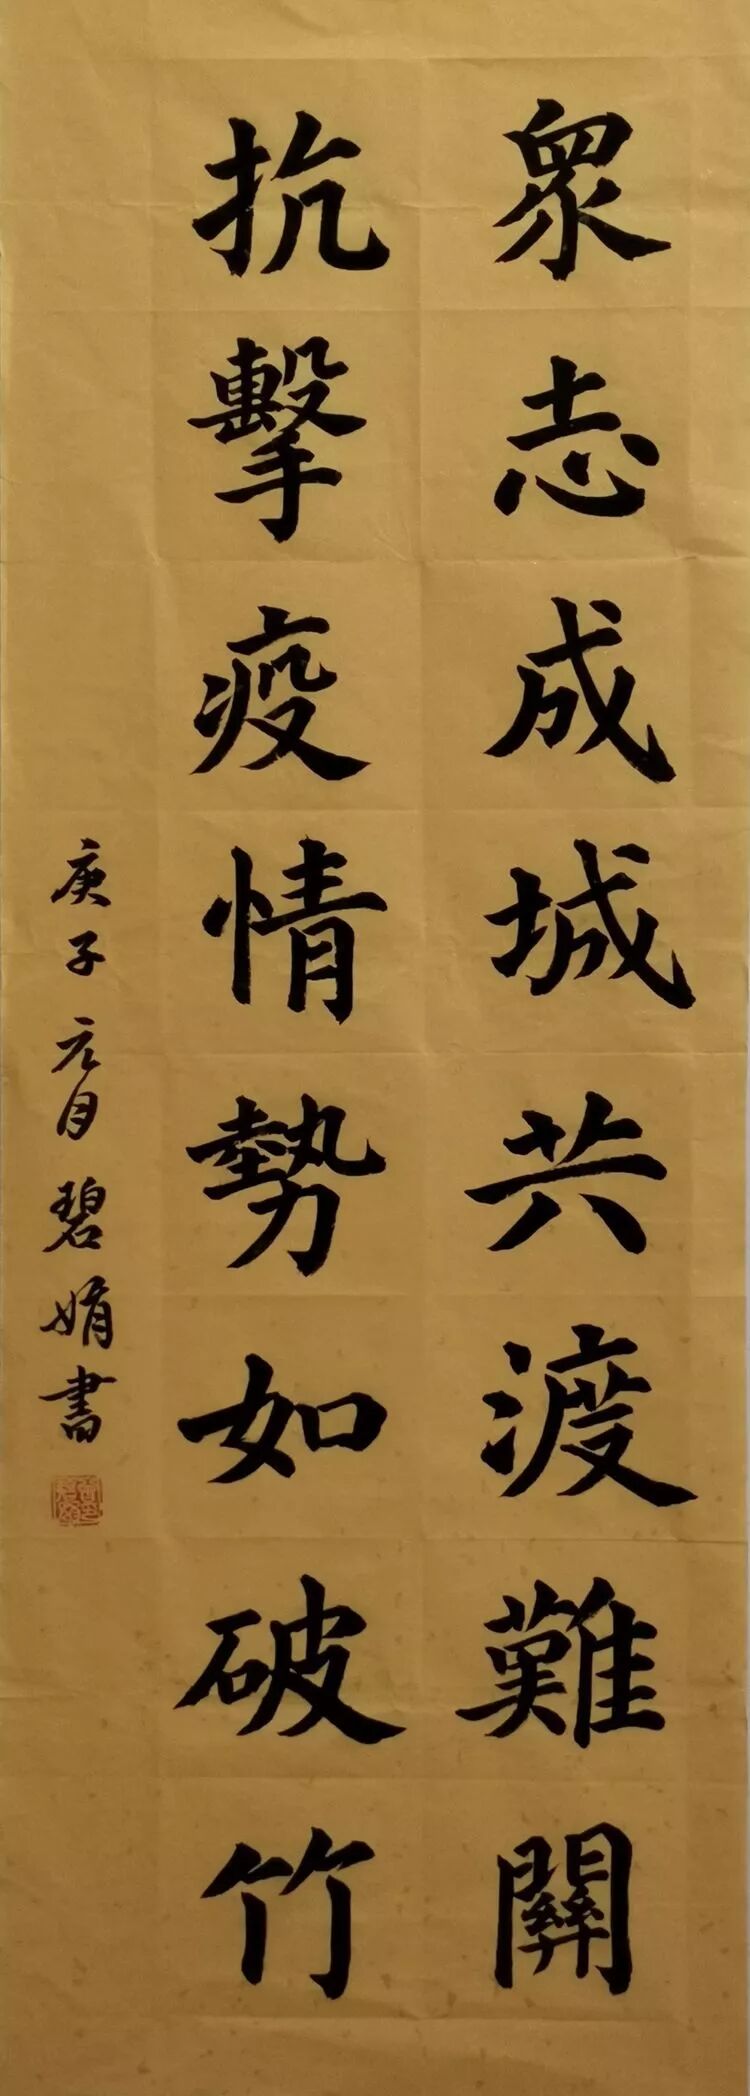 眾志成城共渡難關
抗擊疫情勢如破竹
庚子元月碧娟書